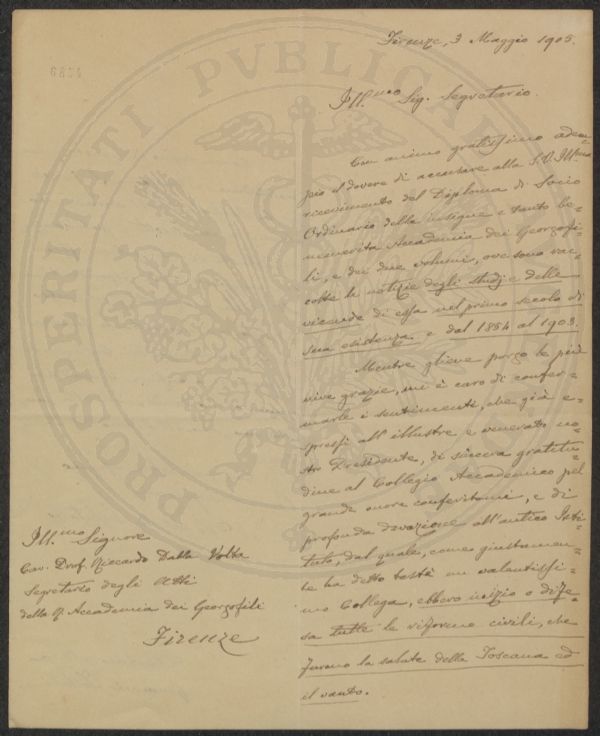 Firenze, 3 Maggio 1905.
Ill.mo Sig. Segretario.
Con animo gratissimo adem-
pio il dovere di accusare alla S.V. Ill.ma
ricevimento del Diploma di Socio
Ordinario della insigne e tanto be-
nemerita Accademia dei Georgofi-
li, e dei due volumi, ove sono rac-
colte le notizie degli studj e delle
vicende di essa nel primo secolo di
sua esistenza e dal 1854 al 1903.
Mentre gliene porgo le più
vive grazie, mi è caro di confer-
marle i sentimenti, che già e-
spressi all'illustre e venerato no-
stro Presidente, di sincera gratitu-
dine al Collegio Accademico pel
grande onore conferitomi, e di
profonda devozione all'antico Isti-
tuto, dal quale, come giustamen-
te ha detto testè un valentissi-
mo Collega, ebbero inizio e dife-
sa tutte le riforme civili, che
furono la salute della Toscana ed
il vanto.
Ill.mo Signore
Cav. Prof. Riccardo Dalla Volta
Segretario degli Atti
della R. Accademia dei Georgofili
Firenze
PROSPERITATI PVBLICAE